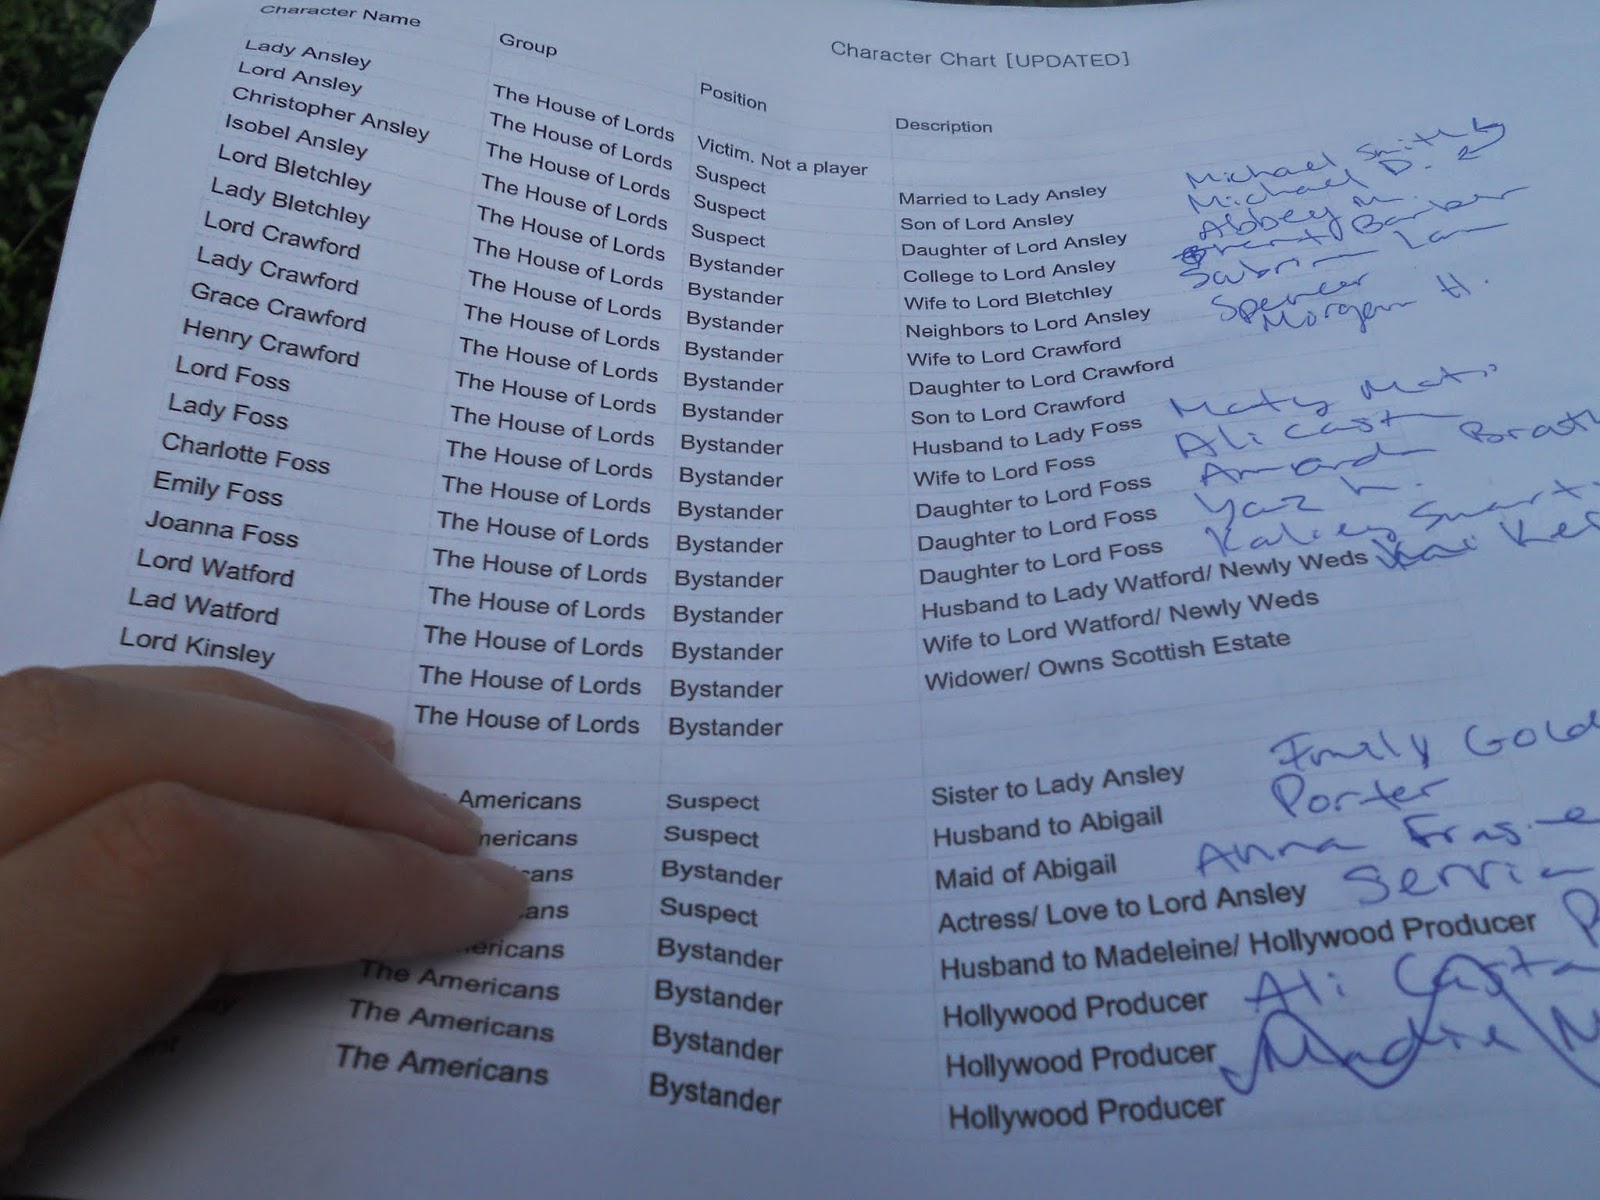 Character Chart [UPDATED]
Character Name Group Position Description
Lady Ansley The House of Lords Victim. Not a player
Lord Ansley The House of Lords Suspect Married to Lady Ansley Michael Smith
Christopher Ansley The House of Lords Suspect Son of Lord Ansley Michael D.
Isobel Ansley The House of Lords Suspect Daughter of Lord Ansley Abbey M.
Lord Bletchley The House of Lords Bystander College to Lord Ansley Barber
Lady Bletchley The House of Lords Bystander Wife to Lord Bletchley
Lord Crawford The House of Lords Bystander Neighbors to Lord Ansley Spencer
Lady Crawford The House of Lords Bystander Wife to Lord Crawford Morgan H.
Grace Crawford The House of Lords Bystander Daughter to Lord Crawford
Henry Crawford The House of Lords Bystander Son to Lord Crawford
Lord Foss The House of Lords Bystander Husband to Lady Foss
Lady Foss The House of Lords Bystander Wife to Lord Foss Ali
Charlotte Foss The House of Lords Bystander Daughter to Lord Foss Amanda
Emily Foss The House of Lords Bystander Daughter to Lord Foss Yaz
Joanna Foss The House of Lords Bystander Daughter to Lord Foss
Lord Watford The House of Lords Bystander Husband to Lady Watford/ Newly Weds Kai
Lad Watford The House of Lords Bystander Wife to Lord Watford/ Newly Weds
Lord Kinsley The House of Lords Bystander Widower/ Owns Scottish Estate
Americans Suspect Sister to Lady Ansley Emily Gold
Suspect Husband to Abigail Porter
Bystander Maid of Abigail Anna
Suspect Actress/ Love to Lord Ansley
Bystander Husband to Madeleine/ Hollywood Producer
The Americans Bystander Hollywood Producer Ali
The Americans Bystander Hollywood Producer Madie
The Americans Bystander Hollywood Producer